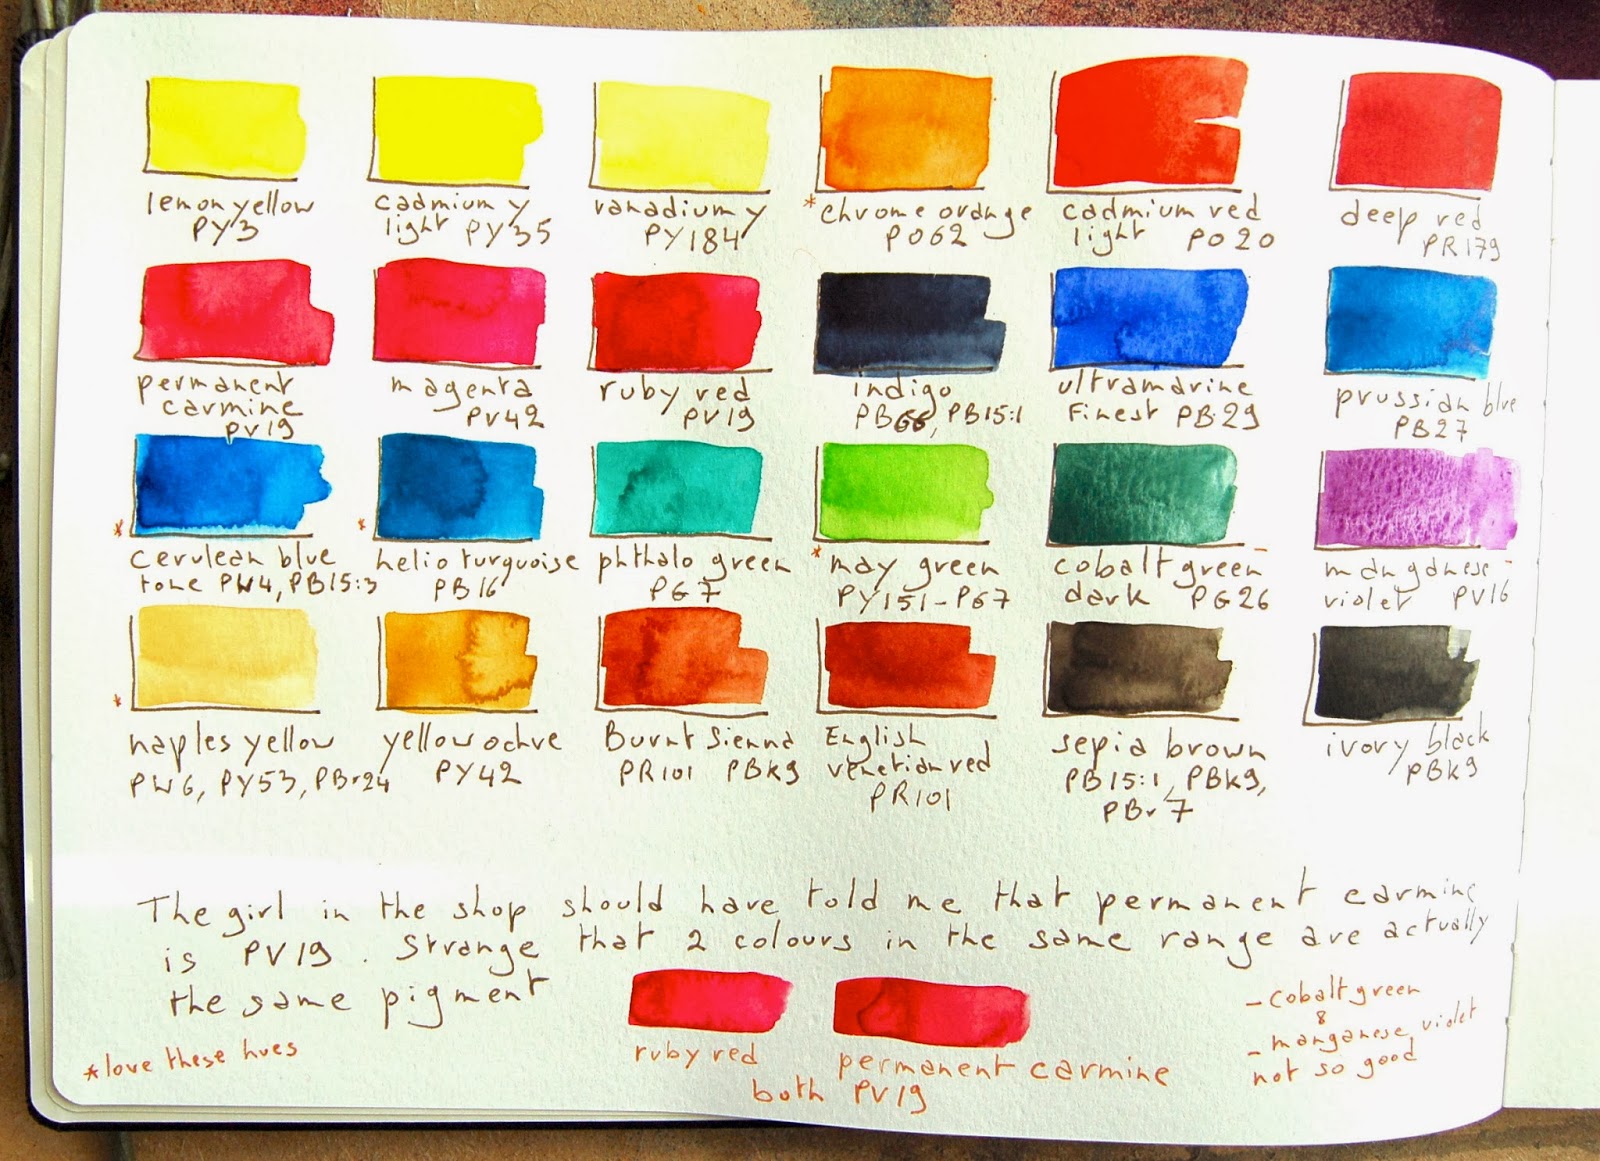 lemon yellow
PY3
cadmium y
light PY35
vanadium y
PY184
*chrome orange
PO62
cadmium red
light PO20
deep red
PR179
permanent
carmine
PV19
magenta
PV42
ruby red
PV19
indigo
PB66, PB15:1
ultramarine
finest PB29
prussian blue
PB27
*
cerulean blue
tone PW4, PB15:3
*
helio turquoise
PB16
phthalo green
PG7
*may green
PY151-PG7
cobalt green -
dark PG26
manganese -
violet PV16
*
naples yellow
PW6, PY53, PBr24
yellow ochre
PY42
Burnt Sienna
PR101 PBk9
English
venetian red
PR101
sepia brown
PB15:1, PBk9,
PBr7
ivory black
PBk9
The girl in the shop should have told me that permanent carmine
is PV19. Strange that 2 colours in the same range are actually
the same pigment
*love these hues
ruby red
permanent carmine
both PV19
- cobalt green
&
- manganese violet
not so good